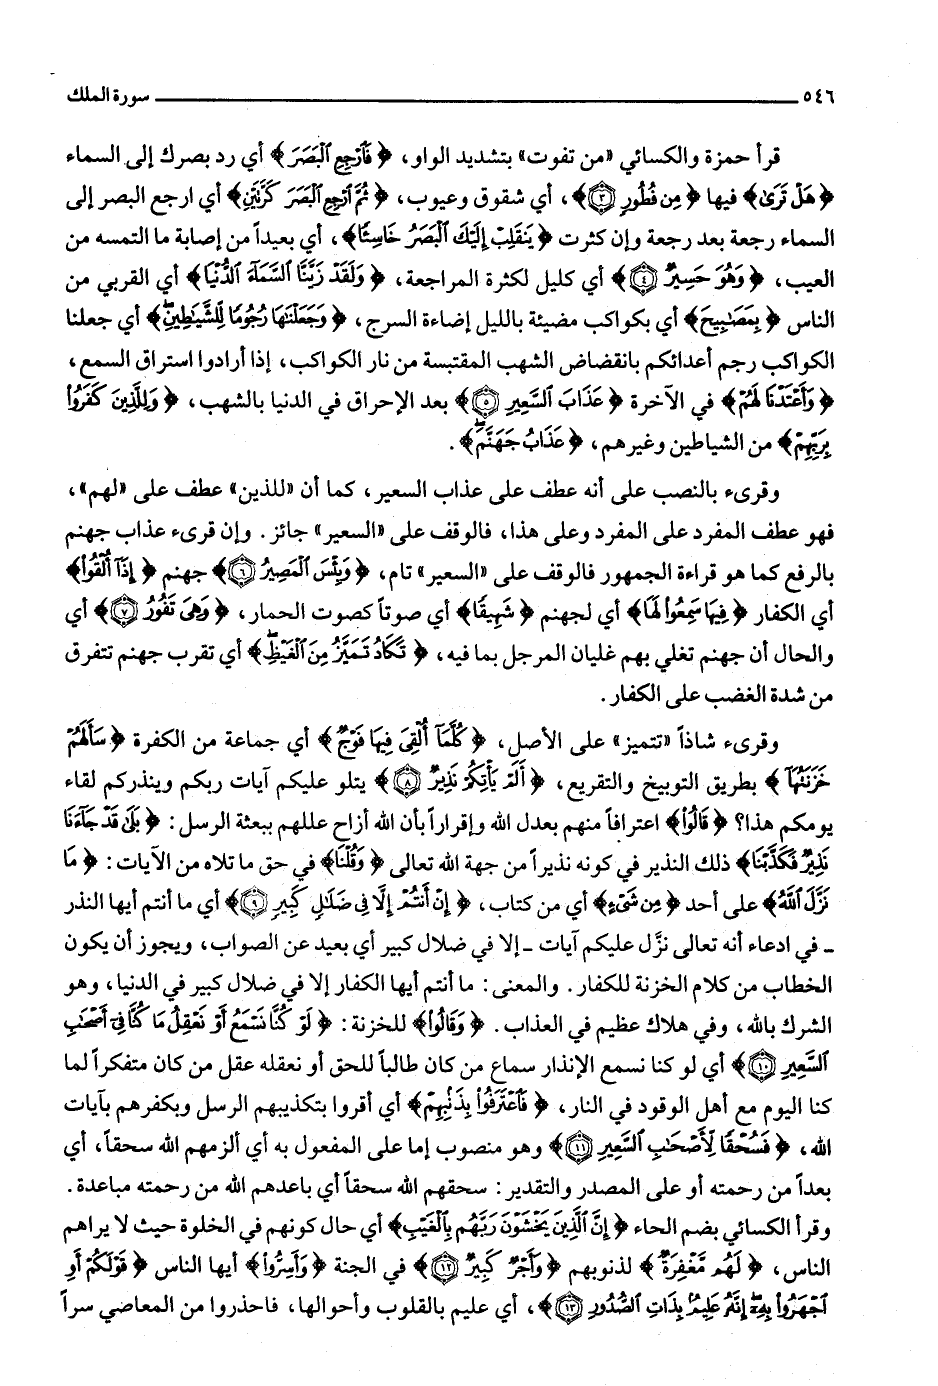 ٥٤٦ سورة الملك
قرأ حمزة والكسائي «من تفوت» بتشديد الواو، ﴿ فَٱرۡجِعِ ٱلۡبَصَرَ ﴾ أي رد بصرك إلى السماء
﴿ هَلۡ تَرَىٰ ﴾ فيها ﴿ مِن فُطُورٖ ٣ ﴾، أي شقوق وعيوب، ﴿ ثُمَّ ٱرۡجِعِ ٱلۡبَصَرَ كَرَّتَيۡنِ ﴾ أي ارجع البصر إلى
السماء رجعة بعد رجعة وإن كثرت ﴿ يَنقَلِبۡ إِلَيۡكَ ٱلۡبَصَرُ خَاسِئٗا ﴾، أي بعيداً من إصابة ما التمسه من
العيب، ﴿ وَهُوَ حَسِيرٞ ٤ ﴾ أي كليل لكثرة المراجعة، ﴿ وَلَقَدۡ زَيَّنَّا ٱلسَّمَآءَ ٱلدُّنۡيَا ﴾ أي القربي من
الناس ﴿ بِمَصَٰبِيحَ ﴾ أي بكواكب مضيئة بالليل إضاءة السرج، ﴿ وَجَعَلۡنَٰهَا رُجُومٗا لِّلشَّيَٰطِينِۖ ﴾ أي جعلنا
الكواكب رجم أعدائكم بانقضاض الشهب المقتبسة من نار الكواكب، إذا أرادوا استراق السمع،
﴿ وَأَعۡتَدۡنَا لَهُمۡ ﴾ في الآخرة ﴿ عَذَابَ ٱلسَّعِيرِ ٥ ﴾ بعد الإحراق في الدنيا بالشهب، ﴿ وَلِلَّذِينَ كَفَرُواْ
بِرَبِّهِمۡ ﴾ من الشياطين وغيرهم، ﴿ عَذَابُ جَهَنَّمَۖ ﴾.
وقرىء بالنصب على أنه عطف على عذاب السعير، كما أن «للذين» عطف على «لهم»،
فهو عطف المفرد على المفرد وعلى هذا، فالوقف على «السعير» جائز. وإن قرىء عذاب جهنم
بالرفع كما هو قراءة الجمهور فالوقف على «السعير» تام، ﴿ وَبِئۡسَ ٱلۡمَصِيرُ ٦ ﴾ جهنم ﴿ إِذَآ أُلۡقُواْ ﴾
أي الكفار ﴿ فِيهَا سَمِعُواْ لَهَا ﴾ أي لجهنم ﴿ شَهِيقٗا ﴾ أي صوتاً كصوت الحمار، ﴿ وَهِيَ تَفُورُ ٧ ﴾ أي
والحال أن جهنم تغلي بهم غليان المرجل بما فيه، ﴿ تَكَادُ تَمَيَّزُ مِنَ ٱلۡغَيۡظِۖ ﴾ أي تقرب جهنم تتفرق
من شدة الغضب على الكفار.
وقرىء شاذاً «تتميز» على الأصل، ﴿ كُلَّمَآ أُلۡقِيَ فِيهَا فَوۡجٞ ﴾ أي جماعة من الكفرة ﴿ سَأَلَهُمۡ
خَزَنَتُهَآ ﴾ بطريق التوبيخ والتقريع، ﴿ أَلَمۡ يَأۡتِكُمۡ نَذِيرٞ ٨ ﴾ يتلو عليكم آيات ربكم وينذركم لقاء
يومكم هذا؟ ﴿ قَالُواْ ﴾ اعترافاً منهم بعدل الله وإقراراً بأن الله أزاح عللهم ببعثة الرسل: ﴿ بَلَىٰ قَدۡ جَآءَنَا
نَذِيرٞ فَكَذَّبۡنَا ﴾ ذلك النذير في كونه نذيراً من جهة الله تعالى ﴿ وَقُلۡنَا ﴾ في حق ما تلاه من الآيات: ﴿ مَا
نَزَّلَ ٱللَّهُ ﴾ على أحد ﴿ مِن شَيۡءٍ ﴾ أي من كتاب، ﴿ إِنۡ أَنتُمۡ إِلَّا فِي ضَلَٰلٖ كَبِيرٖ ٩ ﴾ أي ما أنتم أيها النذر
ـ في ادعاء أنه تعالى نزَّل عليكم آيات ـ إلا في ضلال كبير أي بعيد عن الصواب، ويجوز أن يكون
الخطاب من كلام الخزنة للكفار. والمعنى: ما أنتم أيها الكفار إلا في ضلال كبير في الدنيا، وهو
الشرك بالله، وفي هلاك عظيم في العذاب. ﴿ وَقَالُواْ ﴾ للخزنة: ﴿ لَوۡ كُنَّا نَسۡمَعُ أَوۡ نَعۡقِلُ مَا كُنَّا فِيٓ أَصۡحَٰبِ
ٱلسَّعِيرِ ١٠ ﴾ أي لو كنا نسمع الإنذار سماع من كان طالباً للحق أو نعقله عقل من كان متفكراً لما
كنا اليوم مع أهل الوقود في النار، ﴿ فَٱعۡتَرَفُواْ بِذَنۢبِهِمۡ ﴾ أي أقروا بتكذيبهم الرسل وبكفرهم بآيات
الله، ﴿ فَسُحۡقٗا لِّأَصۡحَٰبِ ٱلسَّعِيرِ ١١ ﴾ وهو منصوب إما على المفعول به أي ألزمهم الله سحقاً، أي
بعداً من رحمته أو على المصدر والتقدير: سحقهم الله سحقاً أي باعدهم الله من رحمته مباعدة.
وقرأ الكسائي بضم الحاء ﴿ إِنَّ ٱلَّذِينَ يَخۡشَوۡنَ رَبَّهُم بِٱلۡغَيۡبِ ﴾ أي حال كونهم في الخلوة حيث لا يراهم
الناس، ﴿ لَهُم مَّغۡفِرَةٞ ﴾ لذنوبهم ﴿ وَأَجۡرٞ كَبِيرٞ ١٢ ﴾ في الجنة ﴿ وَأَسِرُّواْ ﴾ أيها الناس ﴿ قَوۡلَكُمۡ أَوِ
ٱجۡهَرُواْ بِهِۦٓۖ إِنَّهُۥ عَلِيمُۢ بِذَاتِ ٱلصُّدُورِ ١٣ ﴾، أي عليم بالقلوب وأحوالها، فاحذروا من المعاصي سراً